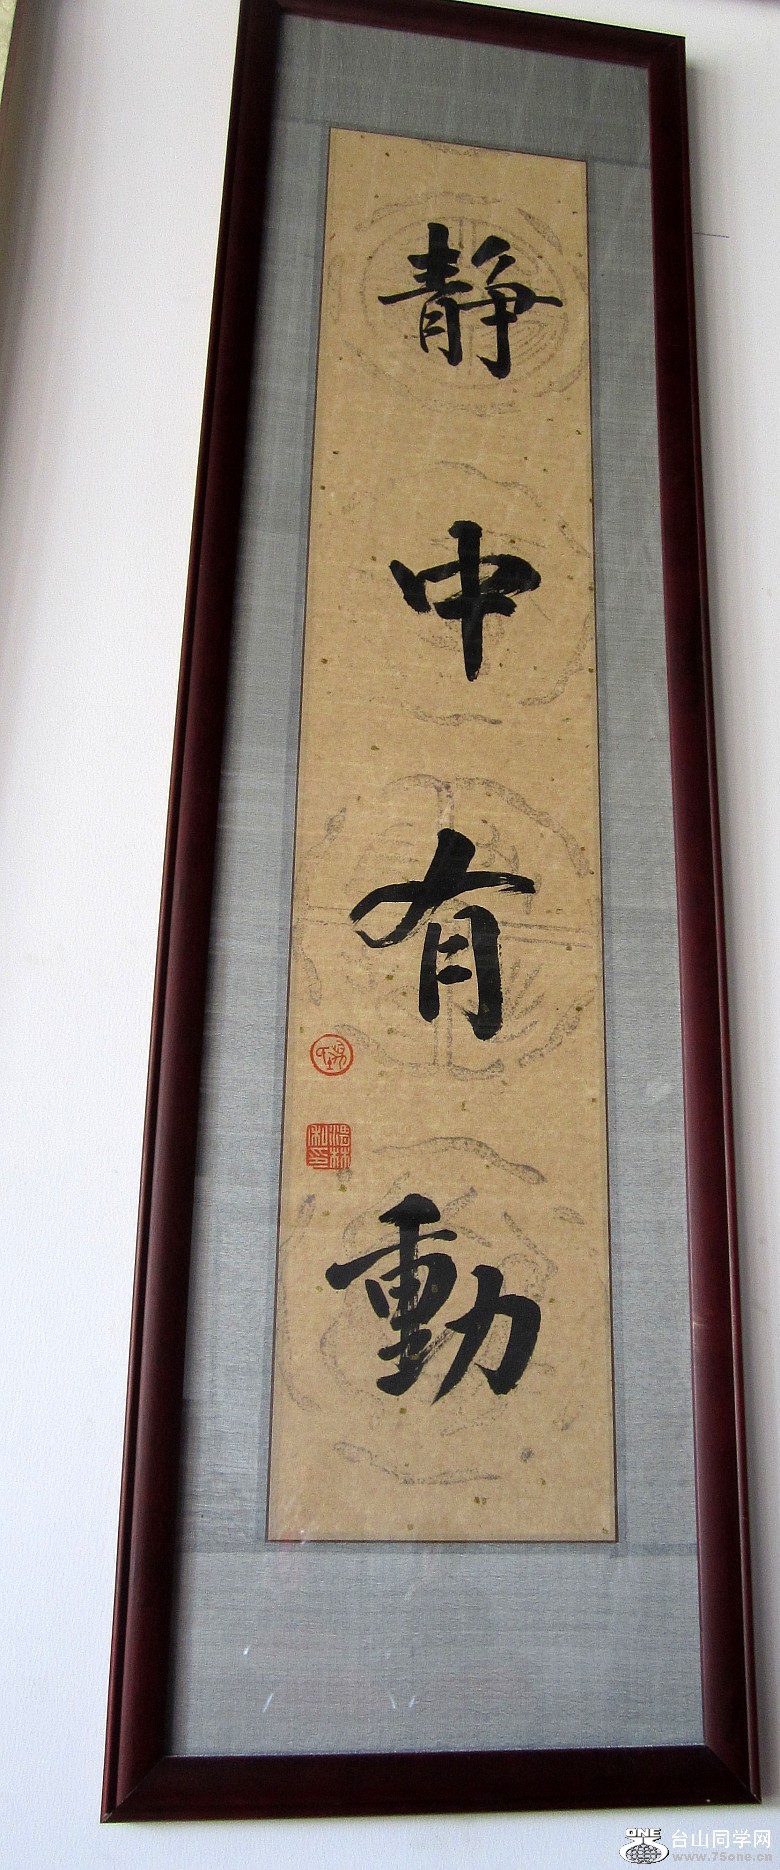 静中有動
ONE
台山同学网
www.75one.cn